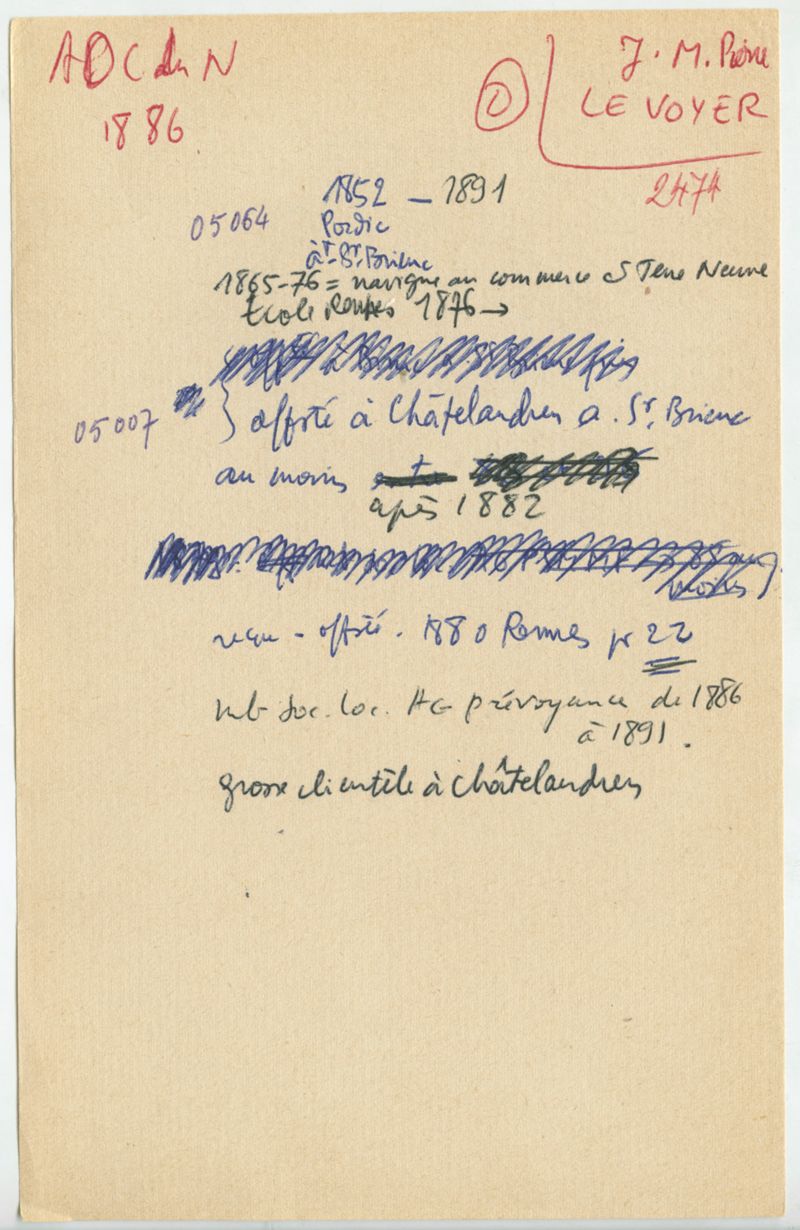 ADC du N
1886
J. M. Pierre
LE VOYER
2474
1852 – 1891
05064 Pordic
à St-Brieuc
1865-76 = navigue au commerce & Terre Neuve
École Rennes 1876 →
05007 } offsté à Châtelaudren a. St. Brieuc
au moins
après 1882
reçu - offsté. 1880 Rennes pr 22
mb Soc. loc. HG prévoyance de 1886
à 1891.
grosse clientèle à Châtelaudren